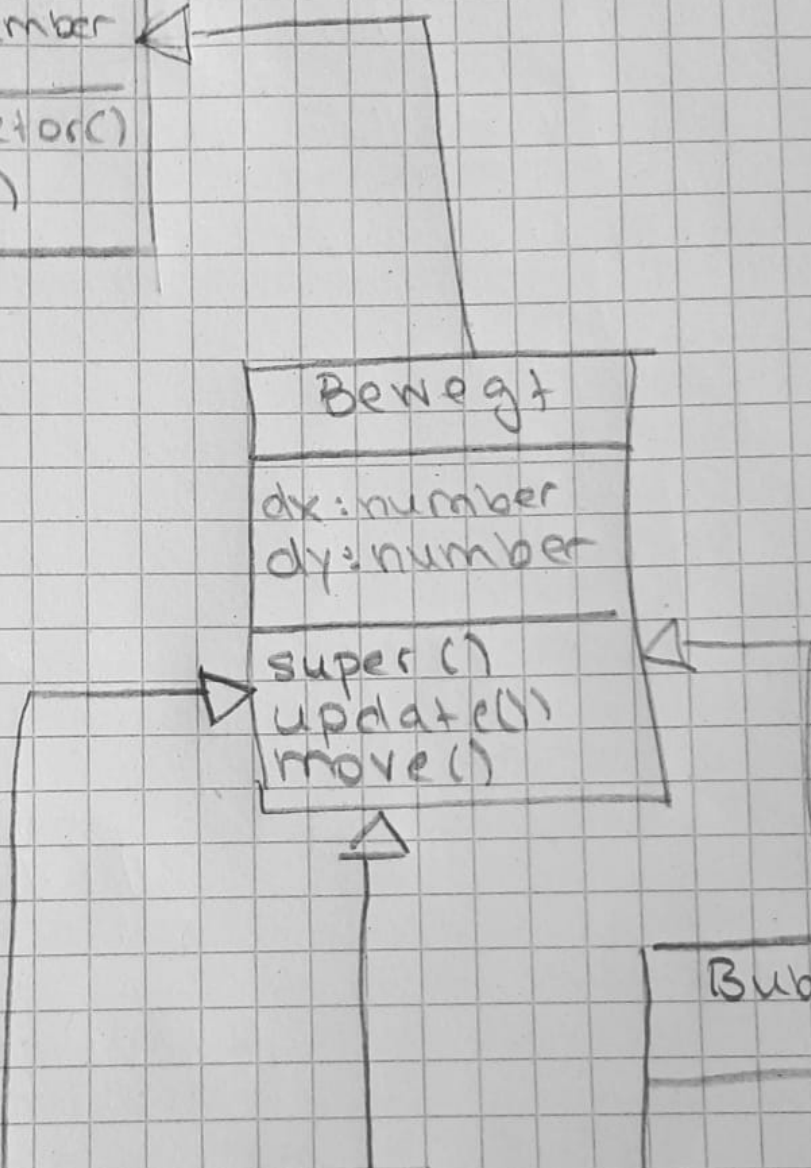 mber
tor()
)
Bewegt
dx:number
dy:number
super()
update())
move()
Bub